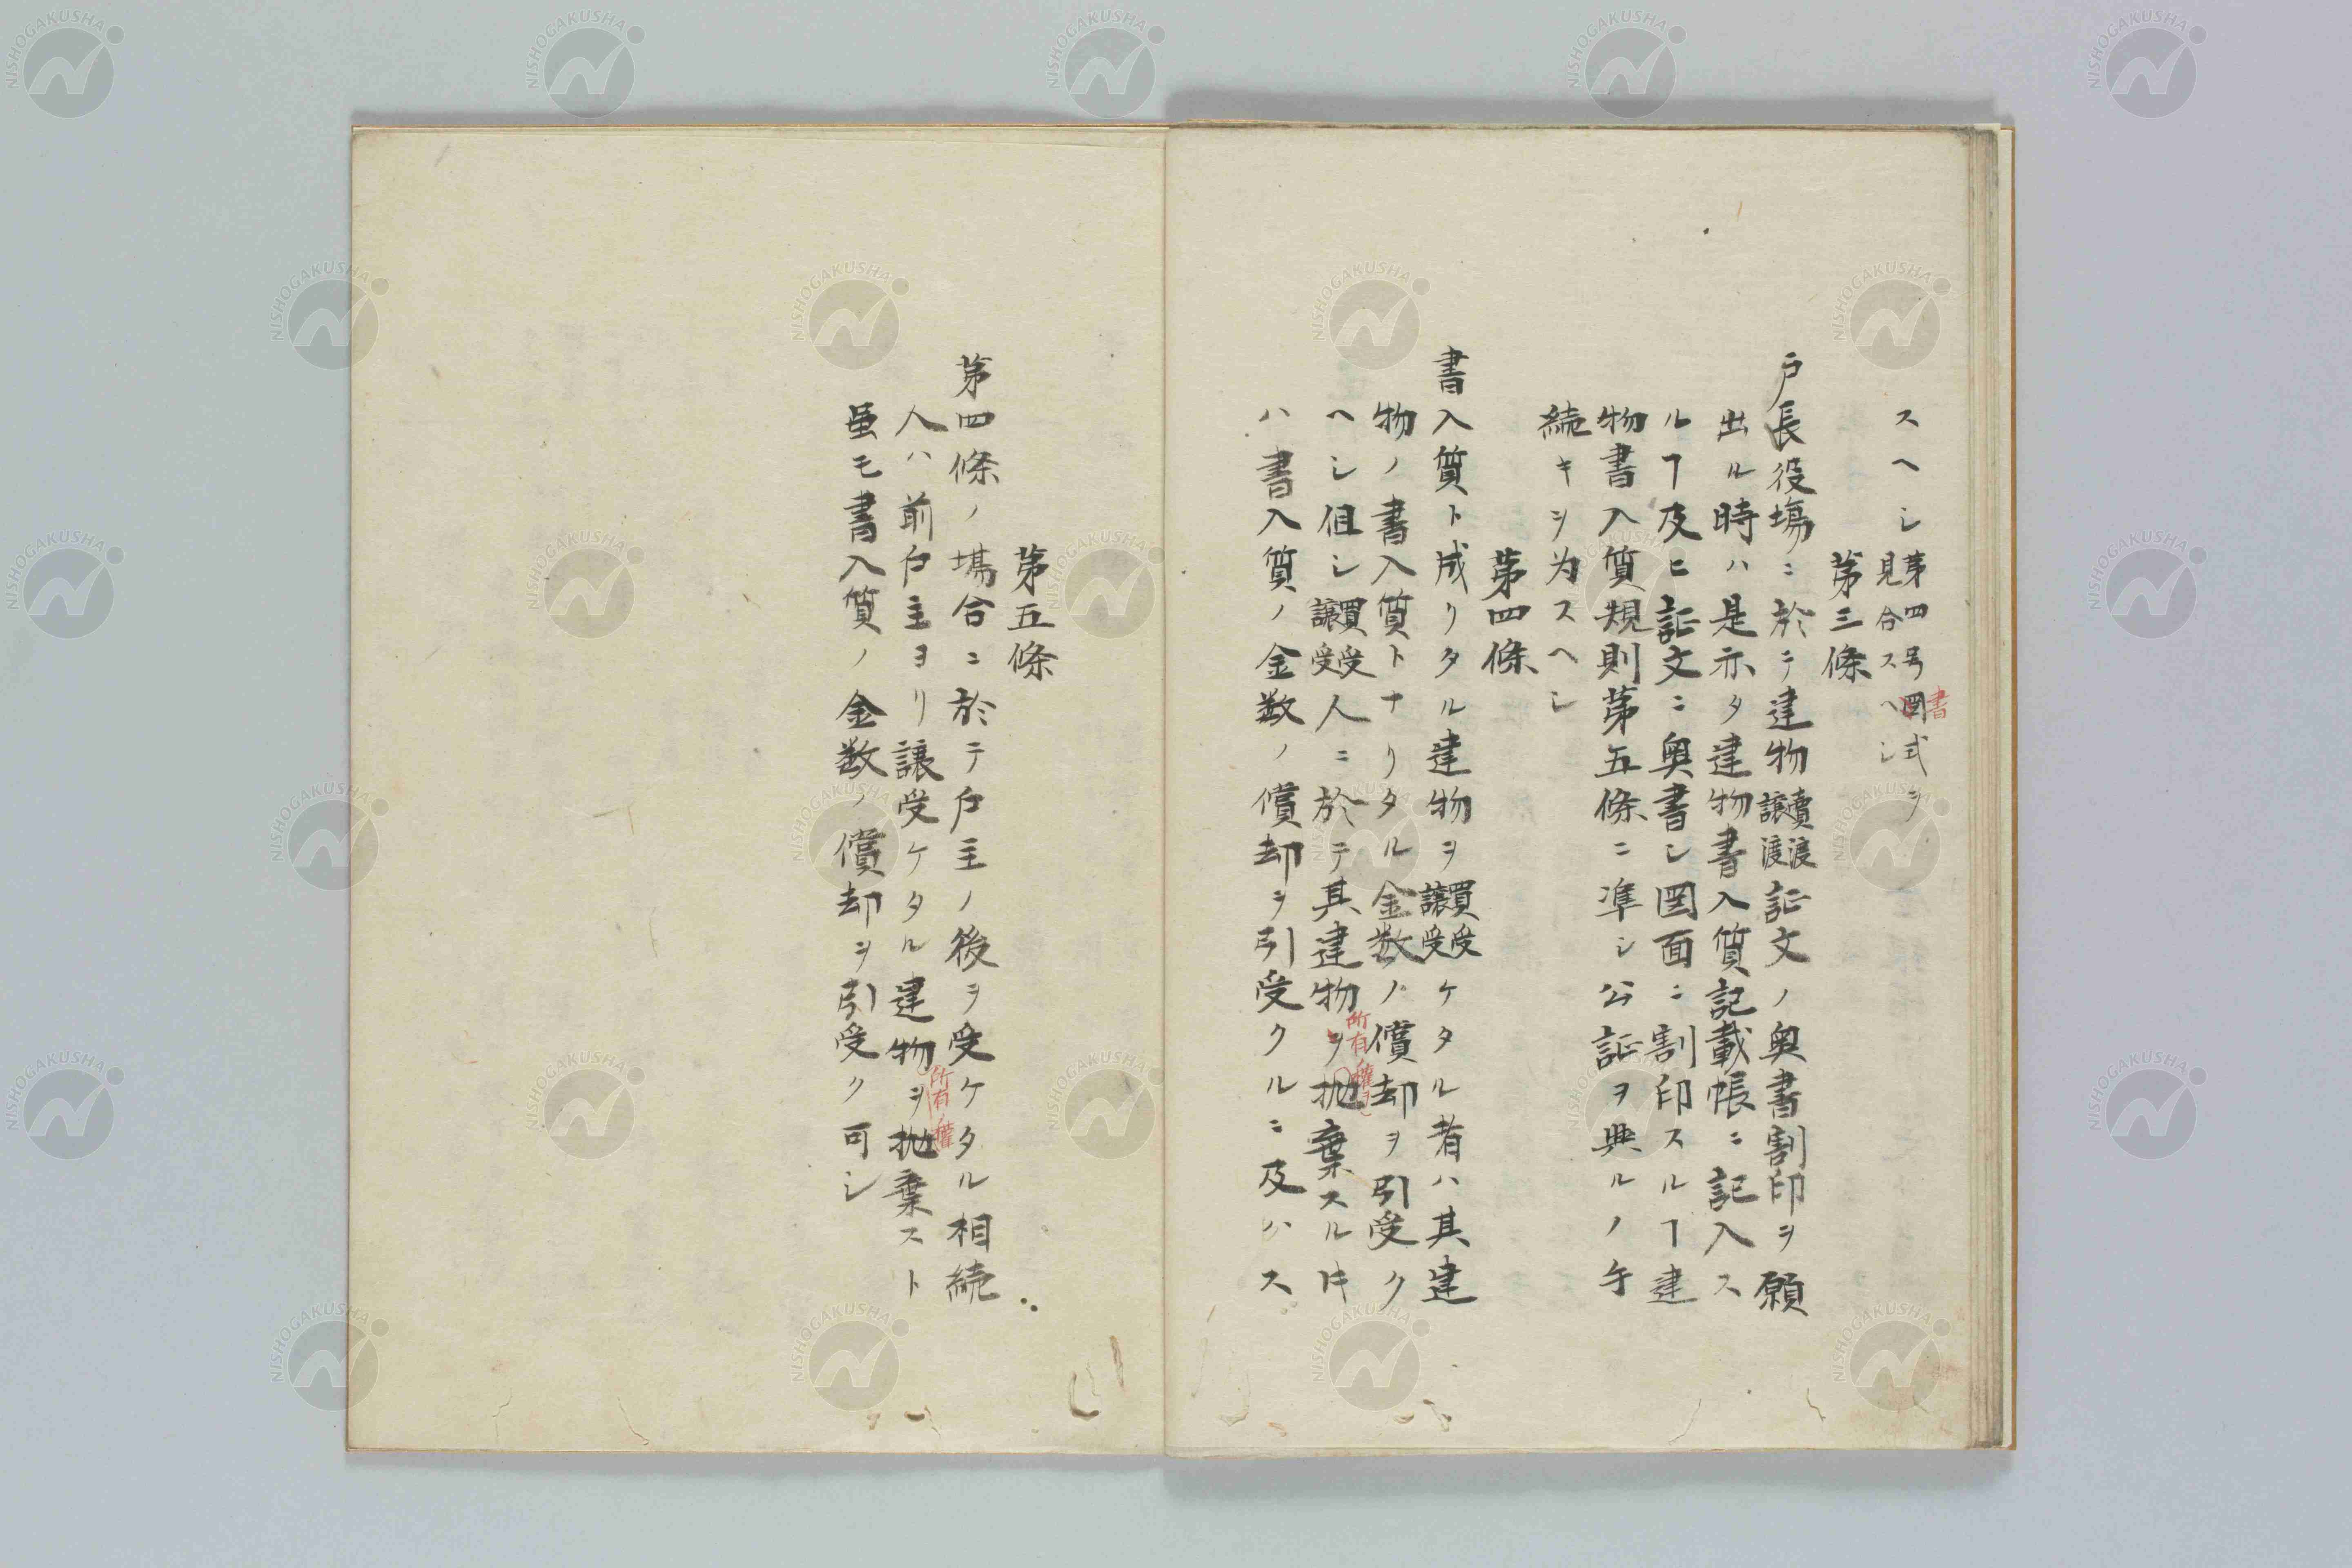 スヘシ第四号圖式ヲ
見合スヘシ
書
第三條
戸長役塲ニ於テ建物賣渡譲渡証文ノ奥書割印ヲ願
出ル時ハ是亦タ建物書入質記載帳ニ記入ス
ルヿ及ヒ証文ニ奥書シ圖面ニ割印スルヿ建
物書入質規則第五條ニ凖シ公証ヲ與ルノ手
続キヲ为スヘシ
第四條
書入質ト成リタル建物ヲ買受譲受ケタル者ハ其建
物ノ書入質トナリタル金数ノ償却ヲ引受ク
ヘシ但シ買受譲受人ニ於テ其建物ヲ抛棄スルキ
所有ノ權
ハ書入質ノ金数ノ償却ヲ引受クルニ及ハス
第五條
第四條ノ塲合ニ於テ戸主ノ後ヲ受ケタル相続
人ハ前戸主ヨリ譲受ケタル建物ヲ抛棄スト
所有ノ權
虽モ書入質ノ金数ノ償却ヲ引受ク可シ
NISHOGAKUSHA